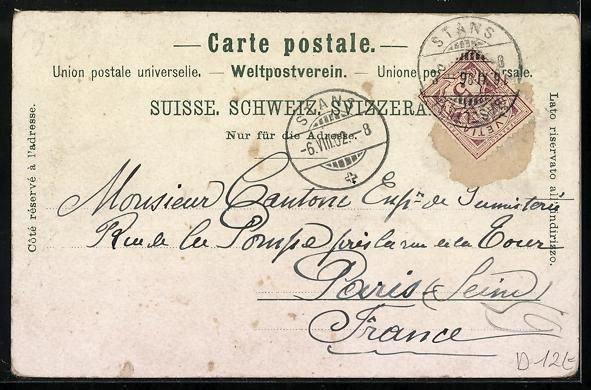 — Carte postale. —
Union postale universelle. — Weltpostverein. — Unione postale universale.
SUISSE. SCHWEIZ. SVIZZERA.
Nur für die Adresse.
Côté réservé à l'adresse.
Lato riservato all'indirizzo.
STANS
STANS
-6.VIII.02.-8
Monsieur Cantone de
Rue de la Pompe près la rue de la Tour
Paris (Seine)
France
D-12E